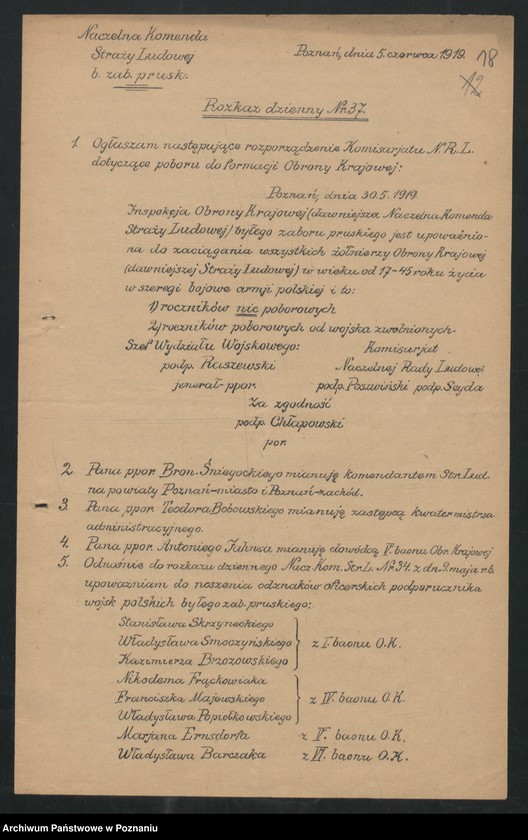 Naczelna Komenda
Straży Ludowej
b. zab. prusk.
Poznań, dnia 5. czerwca 1919.
18
12
Rozkaz dzienny Nr. 37.
1. Ogłaszam następujące rozporządzenie Komisarjatu N.R.L.
dotyczące poboru do formacji Obrony Krajowej:
Poznań, dnia 30.5.1919.
Inspekcja Obrony Krajowej (dawniejsza Naczelna Komenda
Straży Ludowej) byłego zaboru pruskiego jest upoważnio-
na do zaciągania wszystkich żołnierzy Obrony Krajowej
(dawniejszej Straży Ludowej) w wieku od 17-45 roku życia
w szeregi bojowe armji polskiej i to:
1) roczników nie poborowych
2) roczników poborowych od wojska zwolnionych.
Szef Wydziału Wojskowego: Komisarjat
podp. Raszewski Naczelnej Rady Ludowej
jenerał-ppor. podp. Poszwiński podp. Seyda
Za zgodność
podp. Chłapowski
por.
2. Pana ppor. Bron. Śniegockiego mianuję komendantem Str. Lud.
na powiaty Poznań-miasto i Poznań-zachód.
3. Pana ppor. Teodora Bobowskiego mianuję zastępcą kwatermistrza
administracyjnego.
4. Pana ppor. Antoniego Jahnsa mianuję dowódcą V. baonu Obr. Krajowej
5. Odnośnie do rozkazu dziennego Nacz. Kom. Str. L. Nr. 34. z dn. 9. maja r.b.
upoważniam do noszenia odznaków oficerskich podporucznika
wojsk polskich byłego zab. pruskiego:
Stanisława Skrzyneckiego
Władysława Smoczyńskiego z I. baonu O.K.
Kazimierza Brzozowskiego
Nikodema Frąckowiaka
Franciszka Majewskiego z IV. baonu O.K.
Władysława Popiołkowskiego
Marjana Ernsdorfa z V. baonu O.K.
Władysława Barczaka z VI. baonu O.K.
Archiwum Państwowe w Poznaniu